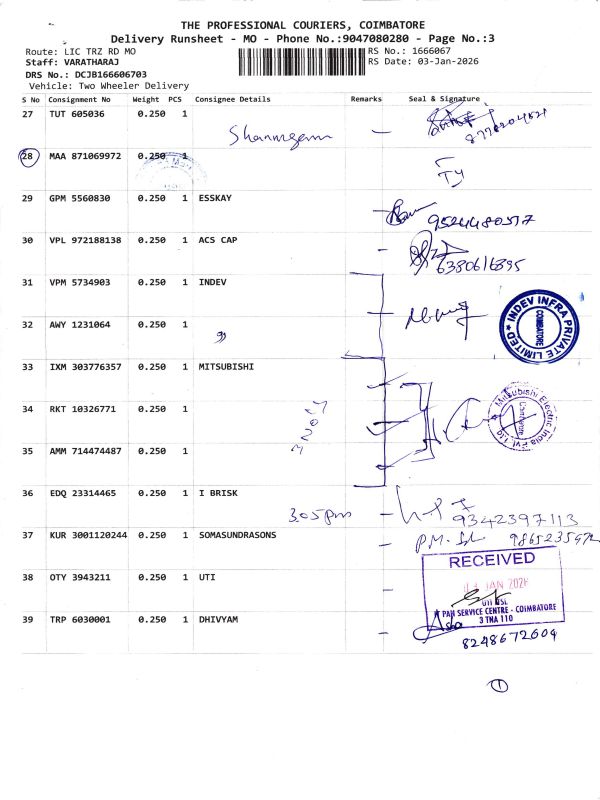 THE PROFESSIONAL COURIERS, COIMBATORE
Delivery Runsheet - MO - Phone No.:9047080280 - Page No.:3
Route: LIC TRZ RD MO
RS No.: 1666067
Staff: VARATHARAJ
RS Date: 03-Jan-2026
DRS No.: DCJB166606703
Vehicle: Two Wheeler Delivery
S No Consignment No Weight PCS Consignee Details Remarks Seal & Signature
27 TUT 605036 0.250 1
Shanmugam
28 MAA 871069972 0.250 1
29 GPM 5560830 0.250 1 ESSKAY
9524480517
30 VPL 972188138 0.250 1 ACS CAP
6380616895
31 VPM 5734903 0.250 1 INDEV
INDEV INFRA PRIVATE LIMITED
COIMBATORE
32 AWY 1231064 0.250 1
33 IXM 303776357 0.250 1 MITSUBISHI
Mitsubishi Electric India Pvt. Ltd
Coimbatore
34 RKT 10326771 0.250 1
35 AMM 714474487 0.250 1
36 EDQ 23314465 0.250 1 I BRISK
3.05 pm
9342397113
37 KUR 3001120244 0.250 1 SOMASUNDRASONS
P.M.
38 OTY 3943211 0.250 1 UTI
RECEIVED
JAN 2026
PAN SERVICE CENTRE - COIMBATORE
3 TNA 110
39 TRP 6030001 0.250 1 DHIVYAM
8248672609
1